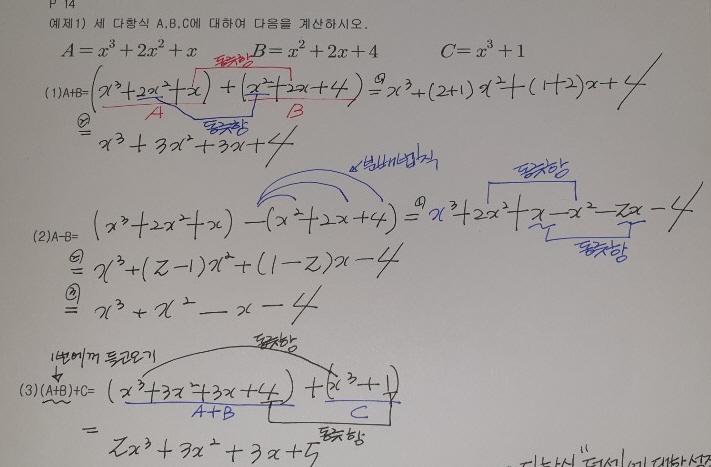 P 14
예제1) 세 다항식 A,B,C에 대하여 다음을 계산하시오.
A = x³ + 2x² + x    B = x² + 2x + 4    C = x³ + 1
동류항
(1)A+B= (x³+2x²+x) + (x²+2x+4) ①= x³+(2+1)x²+(1+2)x+4
A B
동류항
②= x³+3x²+3x+4
분배법칙
동류항
(2)A-B= (x³+2x²+x) -(x²+2x+4) ①= x³+2x²+x-x²-2x-4
동류항
②= x³+(2-1)x²+(1-2)x-4
③= x³+x²-x-4
동류항
1번에꺼 들고오기
(3)(A+B)+C= (x³+3x²+3x+4) + (x³+1)
A+B C
동류항
= 2x³+3x²+3x+5